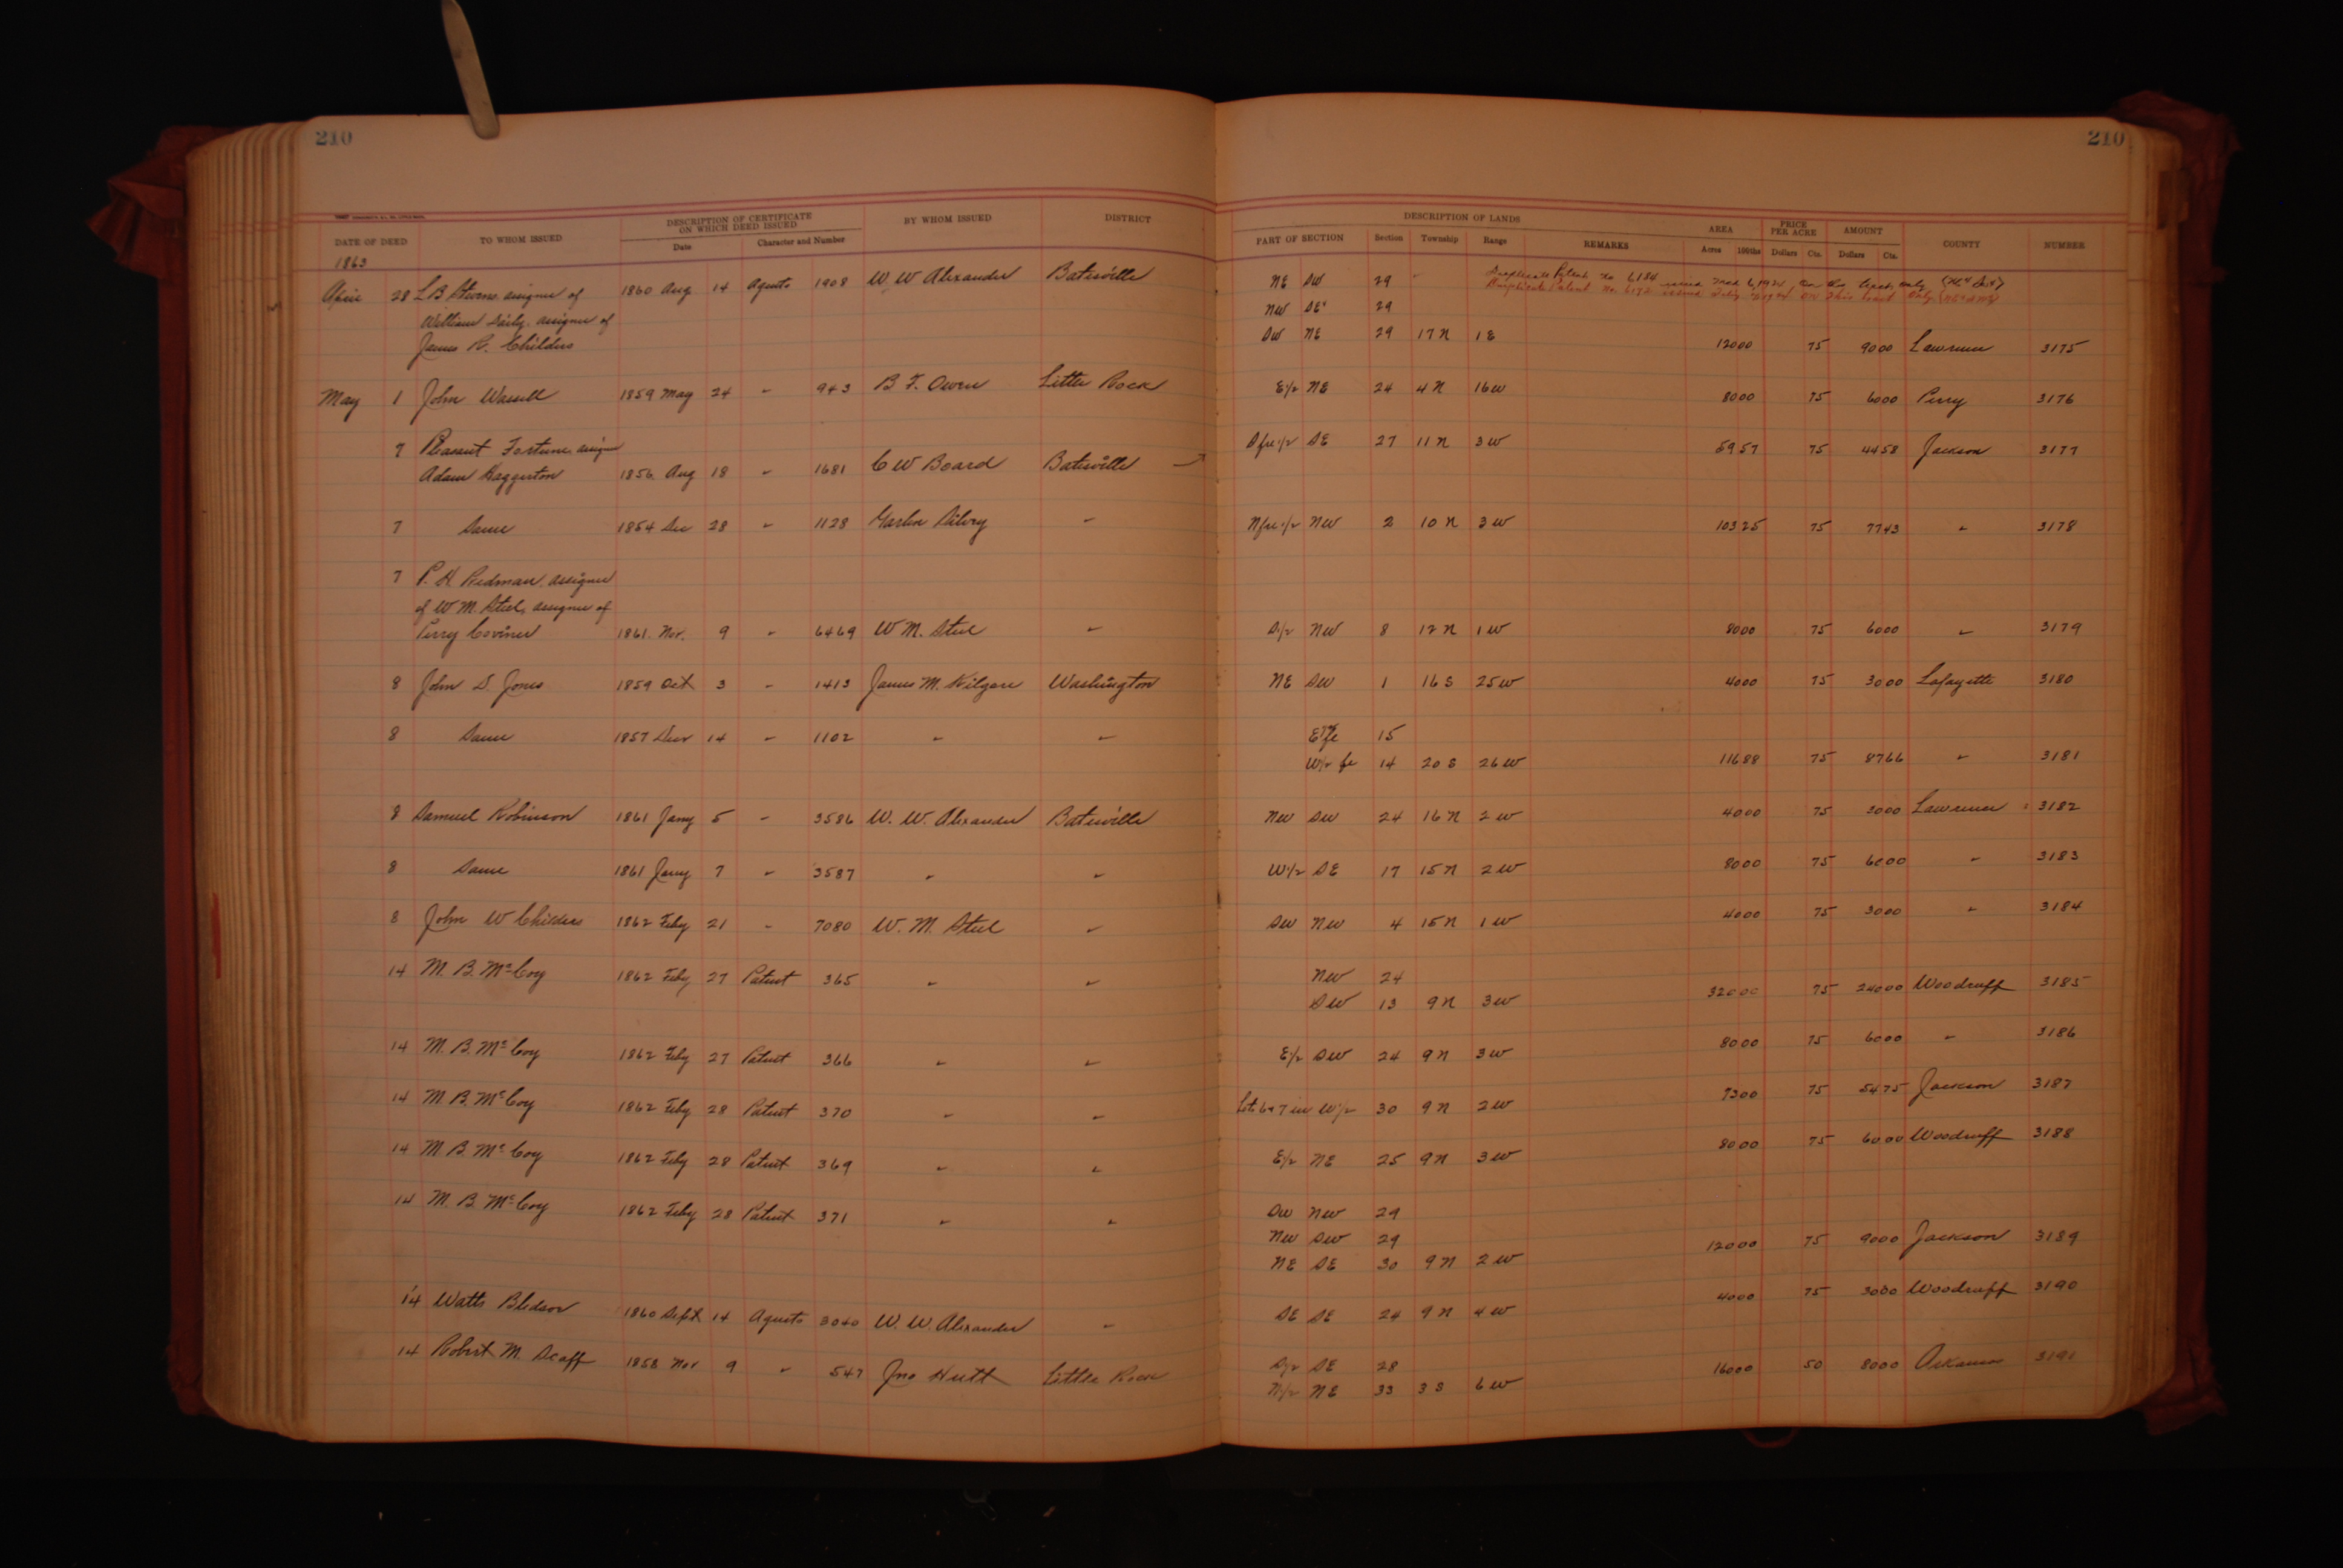 210
210
DATE OF DEED TO WHOM ISSUED DESCRIPTION OF CERTIFICATE ON WHICH DEED ISSUED BY WHOM ISSUED DISTRICT DESCRIPTION OF LANDS AREA PRICE PER ACRE AMOUNT COUNTY NUMBER
Date Character and Number PART OF SECTION Section Township Range REMARKS Acres 100ths Dollars Cts. Dollars Cts.
1863
Duplicate Patent No 6184 issued 1924 on this tract only
Duplicate Patent No. 6192 issued 1924 on this tract only
April 28 L B Stevens assignee of 1860 Aug 14 Agents 1908 W. W Alexander Batesville NE SW 29
William Daily, assignee of NW SE 29
James R. Childers SW NE 29 17 N 1 E 120 00 75 90 00 Lawrence 3175
May 1 John Wassell 1859 May 24 " 943 B F. Owen Little Rock E½ NE 24 4 N 16 W 80 00 75 60 00 Perry 3176
7 Pleasant Fortune, assignee
Adam Haggerton 1856 Aug 18 " 1681 C W Board Batesville S fr ½ SE 27 11 N 3 W 59 57 75 44 58 Jackson 3177
7 Same 1854 Dec 28 " 1128 " N fr ½ NW 2 10 N 3 W 103 25 75 77 43 " 3178
7 P. H. Redman, assignee
of W M. Steel, assignee of
Perry Coviner 1861 Nov. 9 " 6469 W M. Steel " S½ NW 8 12 N 1 W 80 00 75 60 00 " 3179
8 John S. Jones 1859 Oct 3 " 1413 James M. Kilgore Washington NE SW 1 16 S 25 W 40 00 75 30 00 Lafayette 3180
8 Same 1857 Decr 14 " 1102 " " E½ fr 15
W½ fr 14 20 S 26 W 116 88 75 87 66 " 3181
8 Samuel Robinson 1861 Jany 5 " 3586 W. W. Alexander Batesville NW SW 24 16 N 2 W 40 00 75 30 00 Lawrence 3182
8 Same 1861 Jany 7 " 3587 " " W½ SE 17 15 N 2 W 80 00 75 60 00 " 3183
8 John W Childers 1862 Feby 21 " 7080 W. M. Steel " SW NW 4 15 N 1 W 40 00 75 30 00 " 3184
14 M. B. McCoy 1862 Feby 27 Patent 365 " " NW 24
SW 13 9 N 3 W 320 00 75 240 00 Woodruff 3185
14 M. B. McCoy 1862 Feby 27 Patent 366 " " E½ SW 24 9 N 3 W 80 00 75 60 00 " 3186
14 M. B. McCoy 1862 Feby 28 Patent 370 " " Lots 6 & 7 in W½ 30 9 N 2 W 73 00 75 54 75 Jackson 3187
14 M. B. McCoy 1862 Feby 28 Patent 369 " " E½ NE 25 9 N 3 W 80 00 75 60 00 Woodruff 3188
14 M. B. McCoy 1862 Feby 28 Patent 371 " " SW NW 29
NW SW 29
NE SE 30 9 N 2 W 120 00 75 90 00 Jackson 3189
14 Watts Bledsoe 1860 Sept 14 Agents 3040 W. W. Alexander " SE SE 24 9 N 4 W 40 00 75 30 00 Woodruff 3190
14 Robert M. Scaff 1858 Nov 9 " 547 Jno Hutt Little Rock S½ SE 28
N½ NE 33 3 S 6 W 160 00 50 80 00 Arkansas 3191